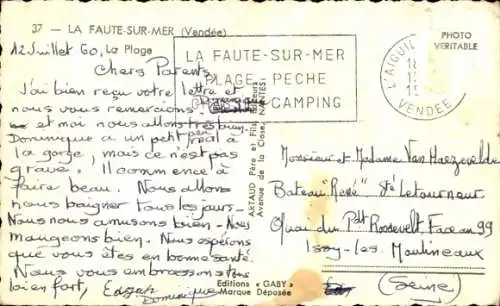 37 — LA FAUTE-SUR-MER (Vendée)
12 Juillet 60, La Plage
Chers Parents
J'ai bien reçu votre lettre et
nous vous remercions.
et moi nous allons très bien.
Dominique a un petit peu mal à
la gorge, mais ce n'est pas
grave. Il commence à
faire beau. Nous allons
nous baigner tous les jours.
Nous nous amusons bien - Nous
mangeons bien. Nous espérons
que vous êtes en bonne santé.
Nous vous embrassons tous
bien fort, Edgar
Dominique
LA FAUTE-SUR-MER
PLAGE PECHE
CAMPING
L'AIGUIL
VENDÉE
PHOTO
VÉRITABLE
ARTAUD Père et Fils, Éditeurs
Avenue de la Close, NANTES
Monsieur et Madame Van
Bateau "René" St Letourneur
Quai du Pdt Roosevelt, Face au 99
Issy-les-Moulineaux
(Seine)
Editions "GABY"
Marque Déposée